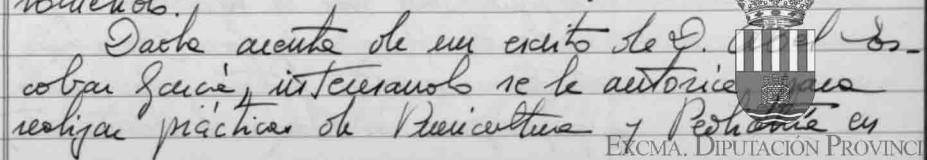 Dada cuenta de un escrito de D. Es-
cobar García, interesando se le autorice para
realizar prácticas de Puericultura y Pediatría en
EXCMA. DIPUTACIÓN PROVINCI